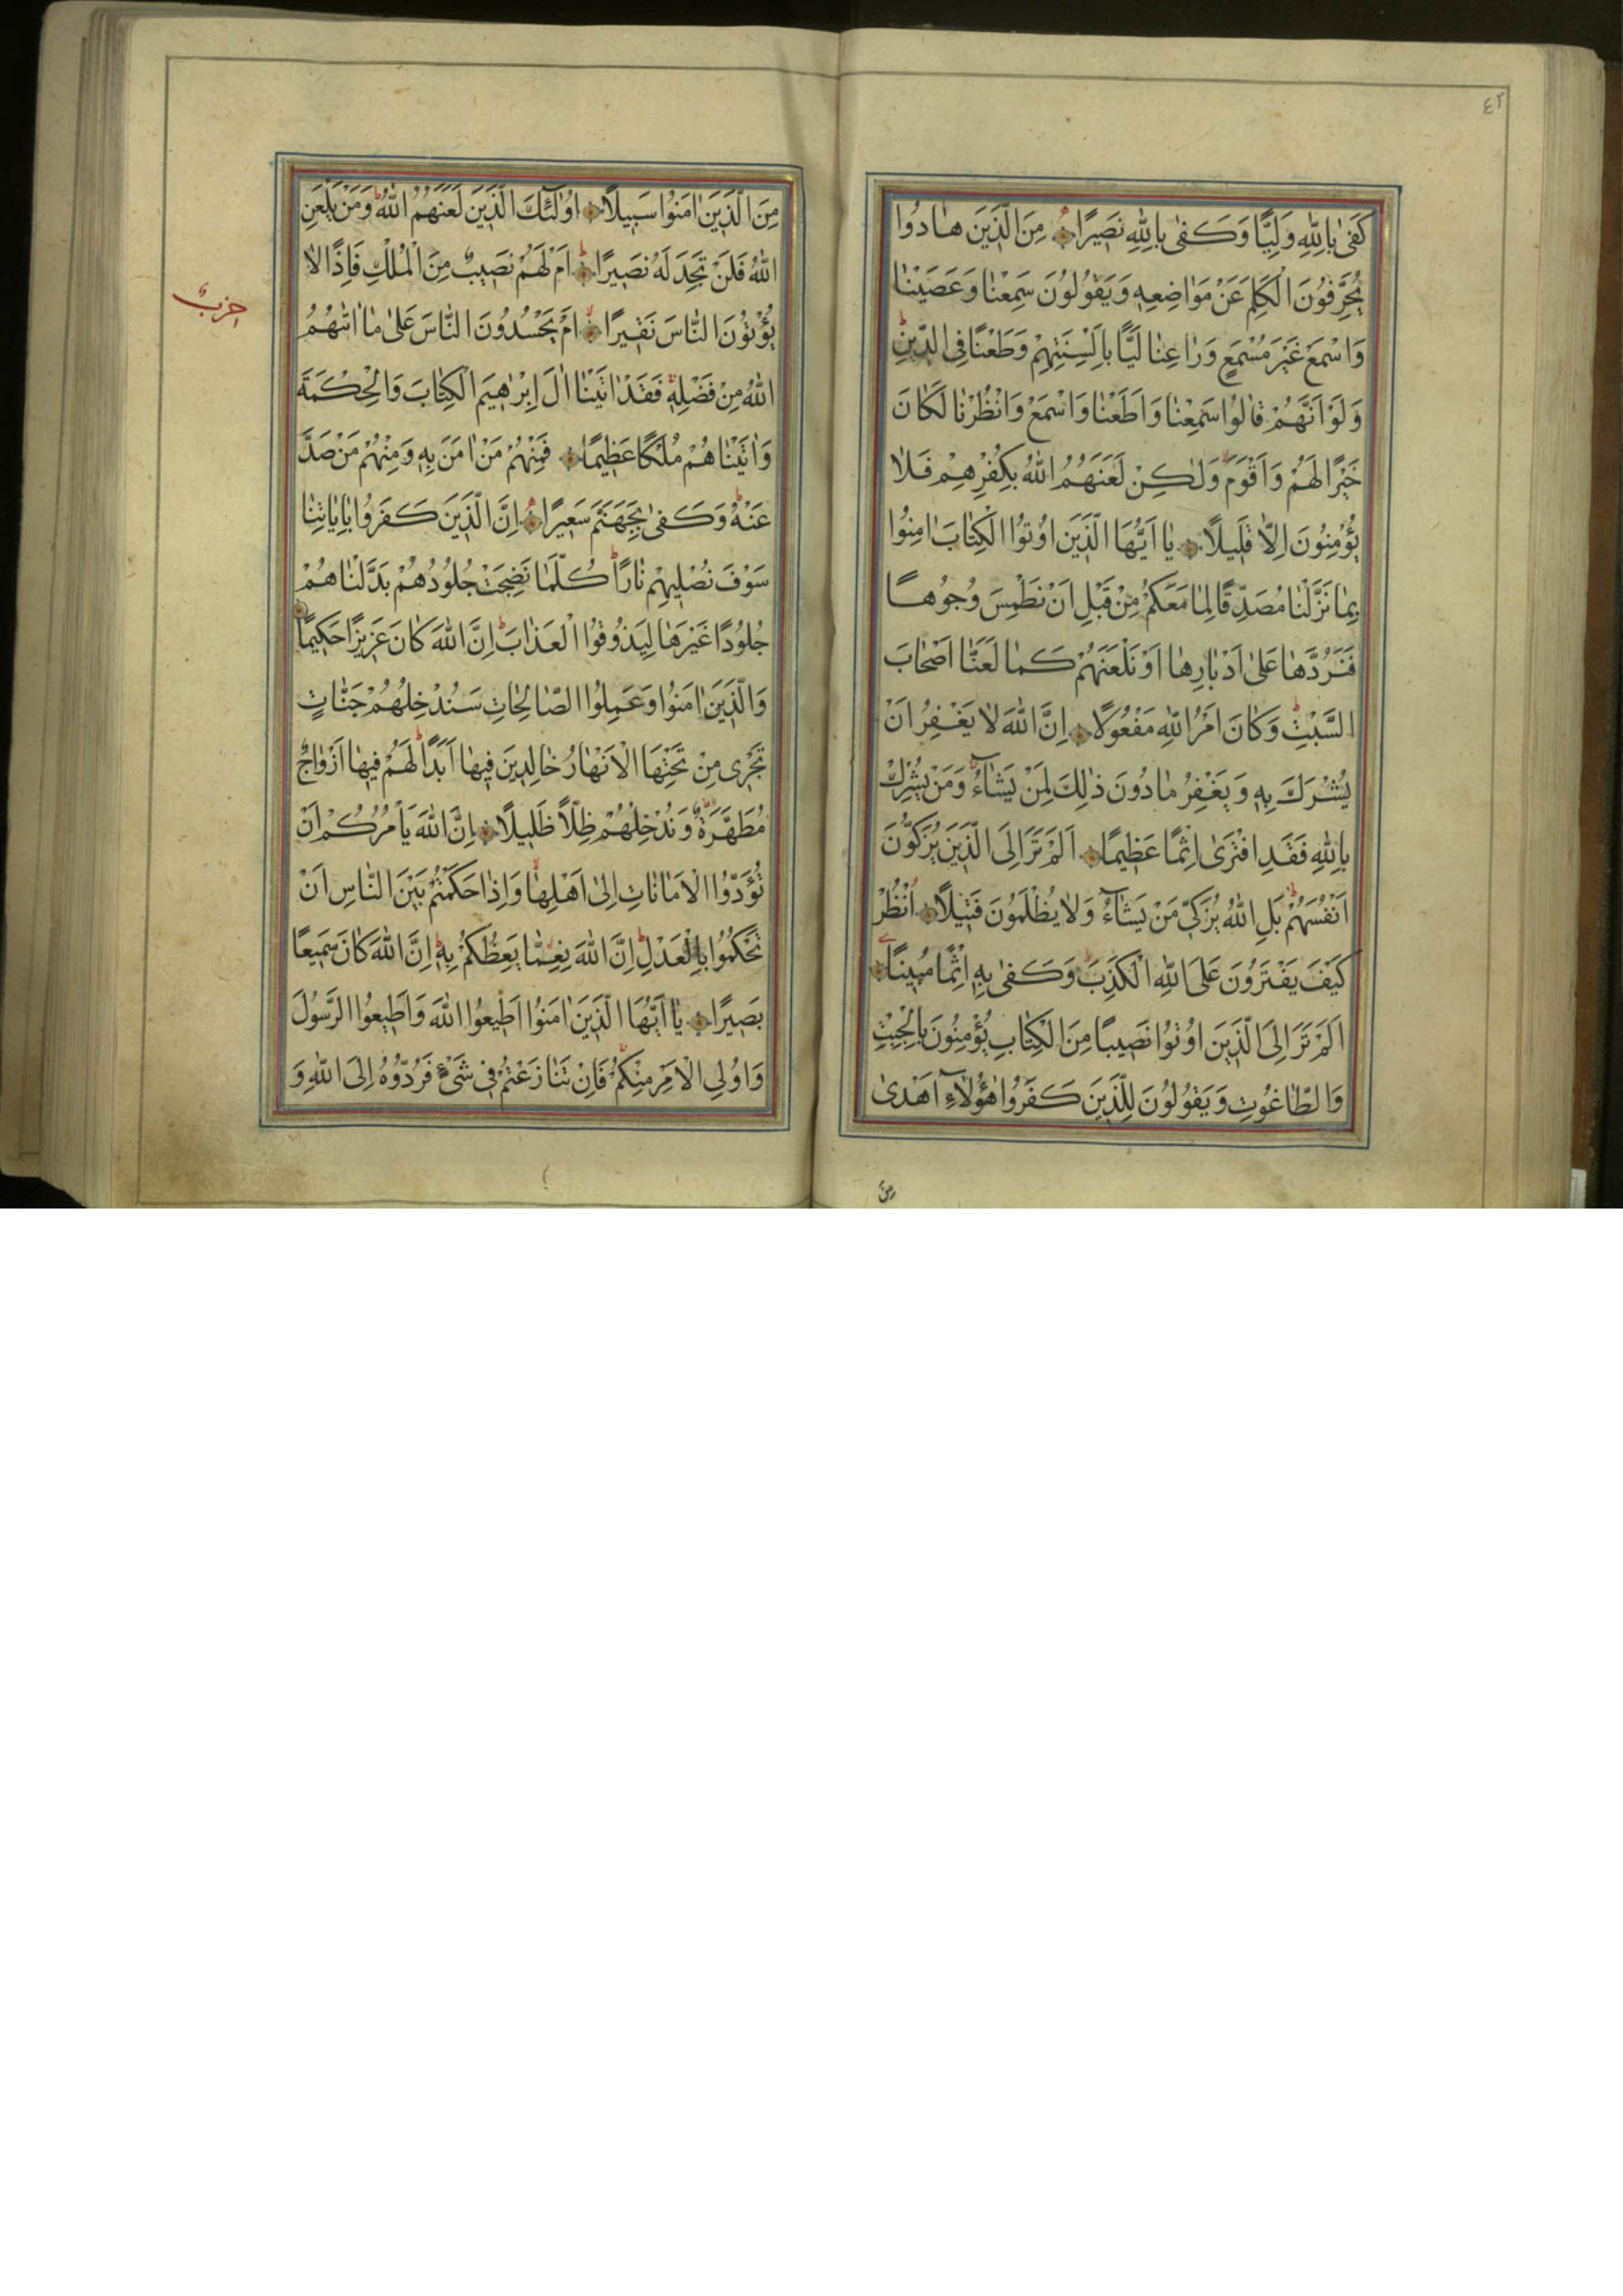 ٤٢
كَفٰى بِاللّٰهِ وَلِيًّا وَكَفٰى بِاللّٰهِ نَصٖيرًا مِنَ الَّذٖينَ هَادُوا
يُحَرِّفُونَ الْكَلِمَ عَنْ مَوَاضِعِهٖ وَيَقُولُونَ سَمِعْنَا وَعَصَيْنَا
وَاسْمَعْ غَيْرَ مُسْمَعٍ وَرَاعِنَا لَيًّا بِاَلْسِنَتِهِمْ وَطَعْنًا فِى الدّٖينِ ط
وَلَوْ اَنَّهُمْ قَالُوا سَمِعْنَا وَاَطَعْنَا وَاسْمَعْ وَانْظُرْنَا لَكَانَ
خَيْرًا لَهُمْ وَاَقْوَمَ وَلٰكِنْ لَعَنَهُمُ اللّٰهُ بِكُفْرِهِمْ فَلَا
يُؤْمِنُونَ اِلَّا قَلٖيلًا يَا اَيُّهَا الَّذٖينَ اُوتُوا الْكِتَابَ اٰمِنُوا
بِمَا نَزَّلْنَا مُصَدِّقًا لِمَا مَعَكُمْ مِنْ قَبْلِ اَنْ نَطْمِسَ وُجُوهًا
فَنَرُدَّهَا عَلٰى اَدْبَارِهَا اَوْ نَلْعَنَهُمْ كَمَا لَعَنَّا اَصْحَابَ
السَّبْتِ ط وَكَانَ اَمْرُ اللّٰهِ مَفْعُولًا اِنَّ اللّٰهَ لَا يَغْفِرُ اَنْ
يُشْرَكَ بِهٖ وَيَغْفِرُ مَا دُونَ ذٰلِكَ لِمَنْ يَشَاءُ وَمَنْ يُشْرِكْ
بِاللّٰهِ فَقَدِ افْتَرٰى اِثْمًا عَظٖيمًا اَلَمْ تَرَ اِلَى الَّذٖينَ يُزَكُّونَ
اَنْفُسَهُمْ ط بَلِ اللّٰهُ يُزَكّٖى مَنْ يَشَاءُ وَلَا يُظْلَمُونَ فَتٖيلًا اُنْظُرْ
كَيْفَ يَفْتَرُونَ عَلَى اللّٰهِ الْكَذِبَ ط وَكَفٰى بِهٖ اِثْمًا مُبٖينًا
اَلَمْ تَرَ اِلَى الَّذٖينَ اُوتُوا نَصٖيبًا مِنَ الْكِتَابِ يُؤْمِنُونَ بِالْجِبْتِ
وَالطَّاغُوتِ وَيَقُولُونَ لِلَّذٖينَ كَفَرُوا هٰؤُلَاءِ اَهْدٰى
مِنَ
مِنَ الَّذٖينَ اٰمَنُوا سَبٖيلًا اُولٰئِكَ الَّذٖينَ لَعَنَهُمُ اللّٰهُ ط وَمَنْ يَلْعَنِ
اللّٰهُ فَلَنْ تَجِدَ لَهُ نَصٖيرًا ط اَمْ لَهُمْ نَصٖيبٌ مِنَ الْمُلْكِ فَاِذًا لَا
حزب
يُؤْتُونَ النَّاسَ نَقٖيرًا اَمْ يَحْسُدُونَ النَّاسَ عَلٰى مَا اٰتٰىهُمُ
اللّٰهُ مِنْ فَضْلِهٖ فَقَدْ اٰتَيْنَا اٰلَ اِبْرٰهٖيمَ الْكِتَابَ وَالْحِكْمَةَ
وَاٰتَيْنَاهُمْ مُلْكًا عَظٖيمًا فَمِنْهُمْ مَنْ اٰمَنَ بِهٖ وَمِنْهُمْ مَنْ صَدَّ
عَنْهُ ط وَكَفٰى بِجَهَنَّمَ سَعٖيرًا اِنَّ الَّذٖينَ كَفَرُوا بِاٰيَاتِنَا
سَوْفَ نُصْلٖيهِمْ نَارًا ط كُلَّمَا نَضِجَتْ جُلُودُهُمْ بَدَّلْنَاهُمْ
جُلُودًا غَيْرَهَا لِيَذُوقُوا الْعَذَابَ ط اِنَّ اللّٰهَ كَانَ عَزٖيزًا حَكٖيمًا
وَالَّذٖينَ اٰمَنُوا وَعَمِلُوا الصَّالِحَاتِ سَنُدْخِلُهُمْ جَنَّاتٍ
تَجْرٖى مِنْ تَحْتِهَا الْاَنْهَارُ خَالِدٖينَ فٖيهَا اَبَدًا ط لَهُمْ فٖيهَا اَزْوَاجٌ
مُطَهَّرَةٌ وَنُدْخِلُهُمْ ظِلًّا ظَلٖيلًا اِنَّ اللّٰهَ يَاْمُرُكُمْ اَنْ
تُؤَدُّوا الْاَمَانَاتِ اِلٰى اَهْلِهَا وَاِذَا حَكَمْتُمْ بَيْنَ النَّاسِ اَنْ
تَحْكُمُوا بِالْعَدْلِ ط اِنَّ اللّٰهَ نِعِمَّا يَعِظُكُمْ بِهٖ ط اِنَّ اللّٰهَ كَانَ سَمٖيعًا
بَصٖيرًا يَا اَيُّهَا الَّذٖينَ اٰمَنُوا اَطٖيعُوا اللّٰهَ وَاَطٖيعُوا الرَّسُولَ
وَاُولِى الْاَمْرِ مِنْكُمْ فَاِنْ تَنَازَعْتُمْ فٖى شَىْءٍ فَرُدُّوهُ اِلَى اللّٰهِ وَ